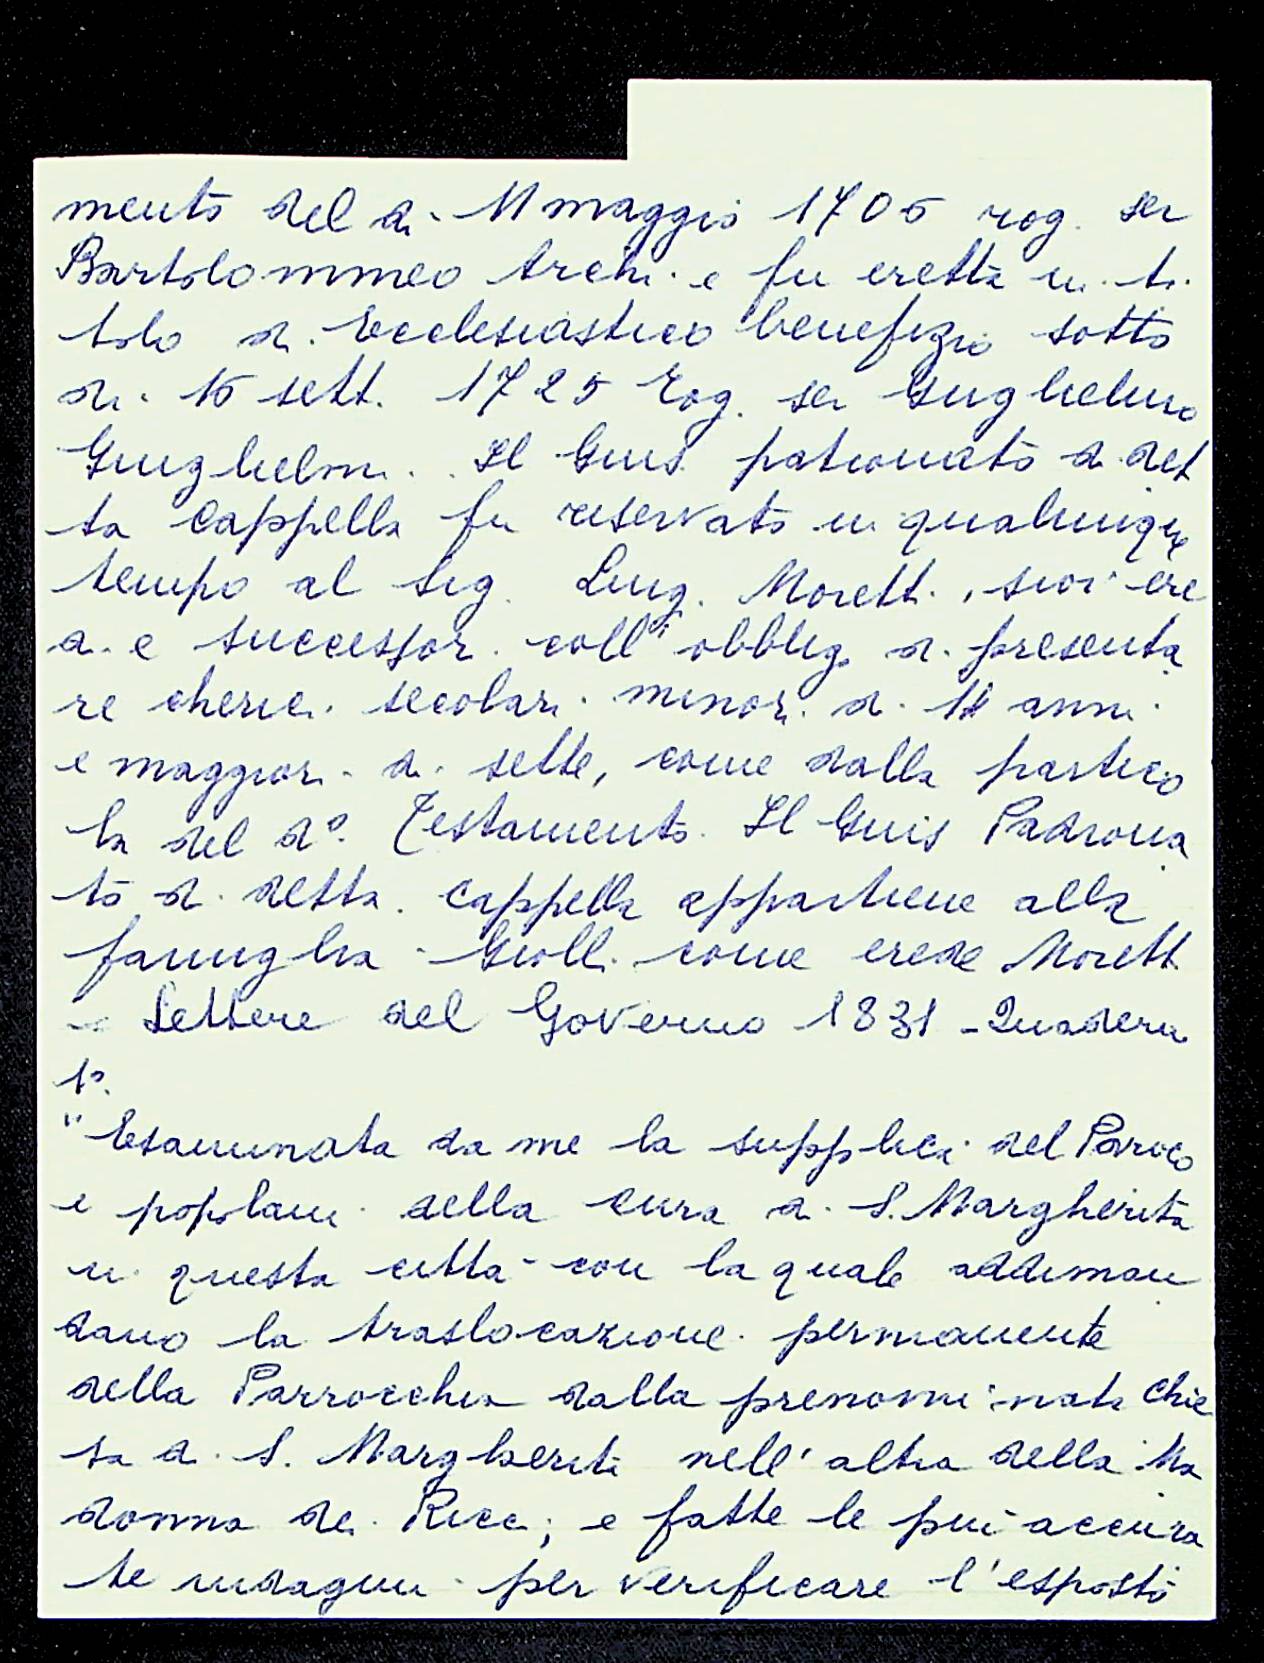 mento del di 11 maggio 1705 rog. ser
Bartolommeo Archi e fu eretta in ti
tolo di Ecclesiastico benefizio sotto
di 15 sett. 1725 Rog. ser Guglielmo
Guglielmi. Il Gius patronato di det
ta Cappella fu riservato in qualunque
tempo al Sig. Luig. Moretti, suoi ere
di e successori coll'obbligo di presenta
re cherici secolari minori di anni
e maggiori di sette, come dalla partico
la del do. Testamento. Il Guis Padrona
to di detta Cappella appartiene alla
famiglia Giolli come erede Moretti
- Lettere del Governo 1831 - Quaderno
1o.
"Esaminata da me la supplica del Parroco
e popolani della cura di S. Margherita
in questa città con la quale addiman
dano la traslocazione permanente
della Parrocchia dalla prenominata Chie
sa di S. Margherita nell'altra della Ma
donna de Ricci; e fatte le più accura
te indagini per verificare l'esposto